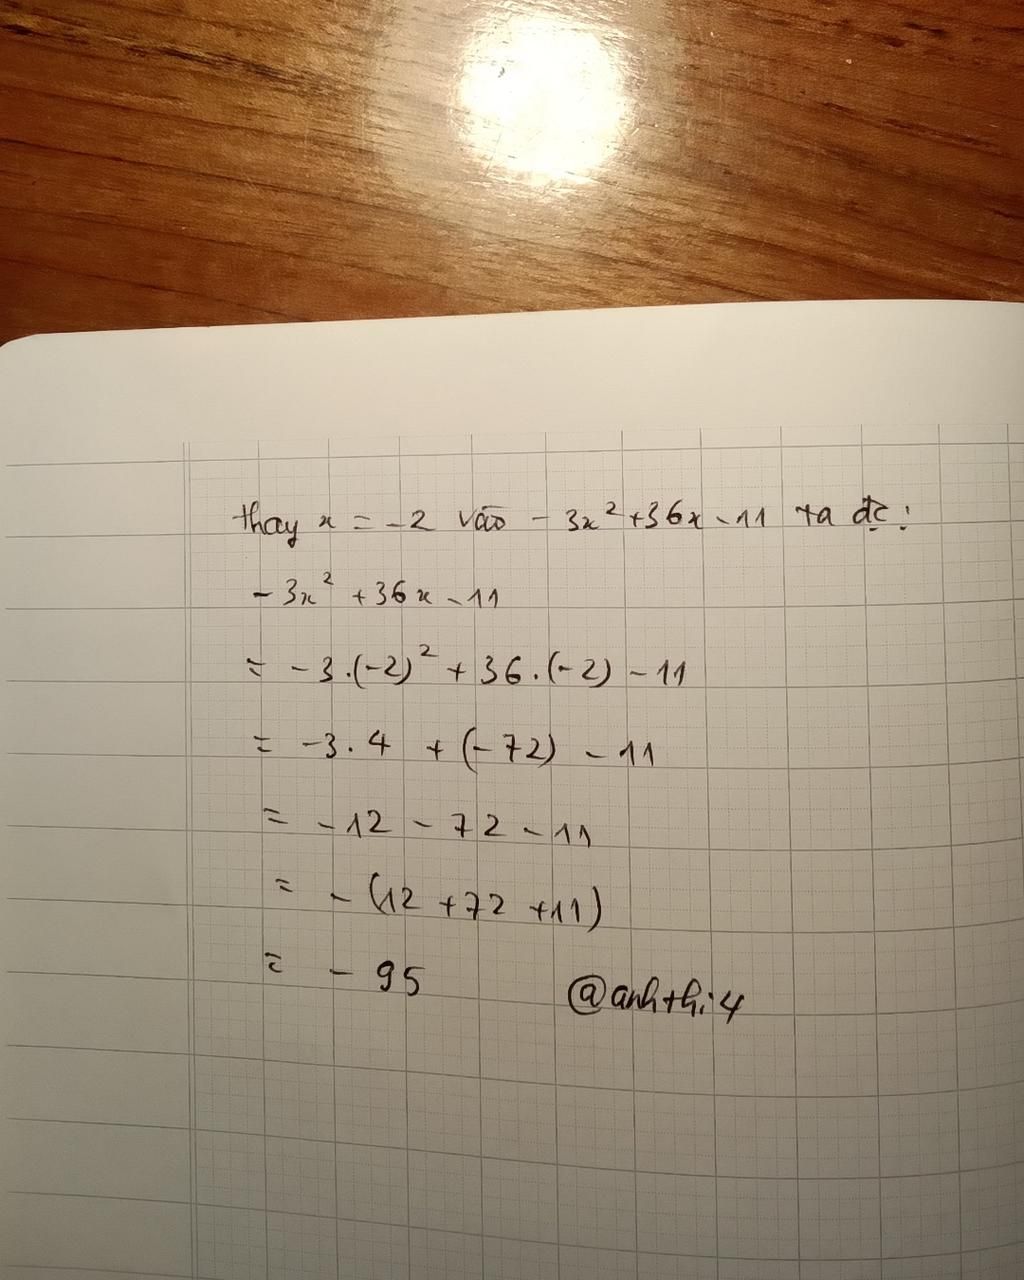 thay x = -2 vào - 3x² + 36x - 11 ta đc :
- 3x² + 36x - 11
= - 3 . (-2)² + 36 . (-2) - 11
= -3 . 4 + (-72) - 11
= - 12 - 72 - 11
= - (12 + 72 + 11)
= - 95
@anhthi4